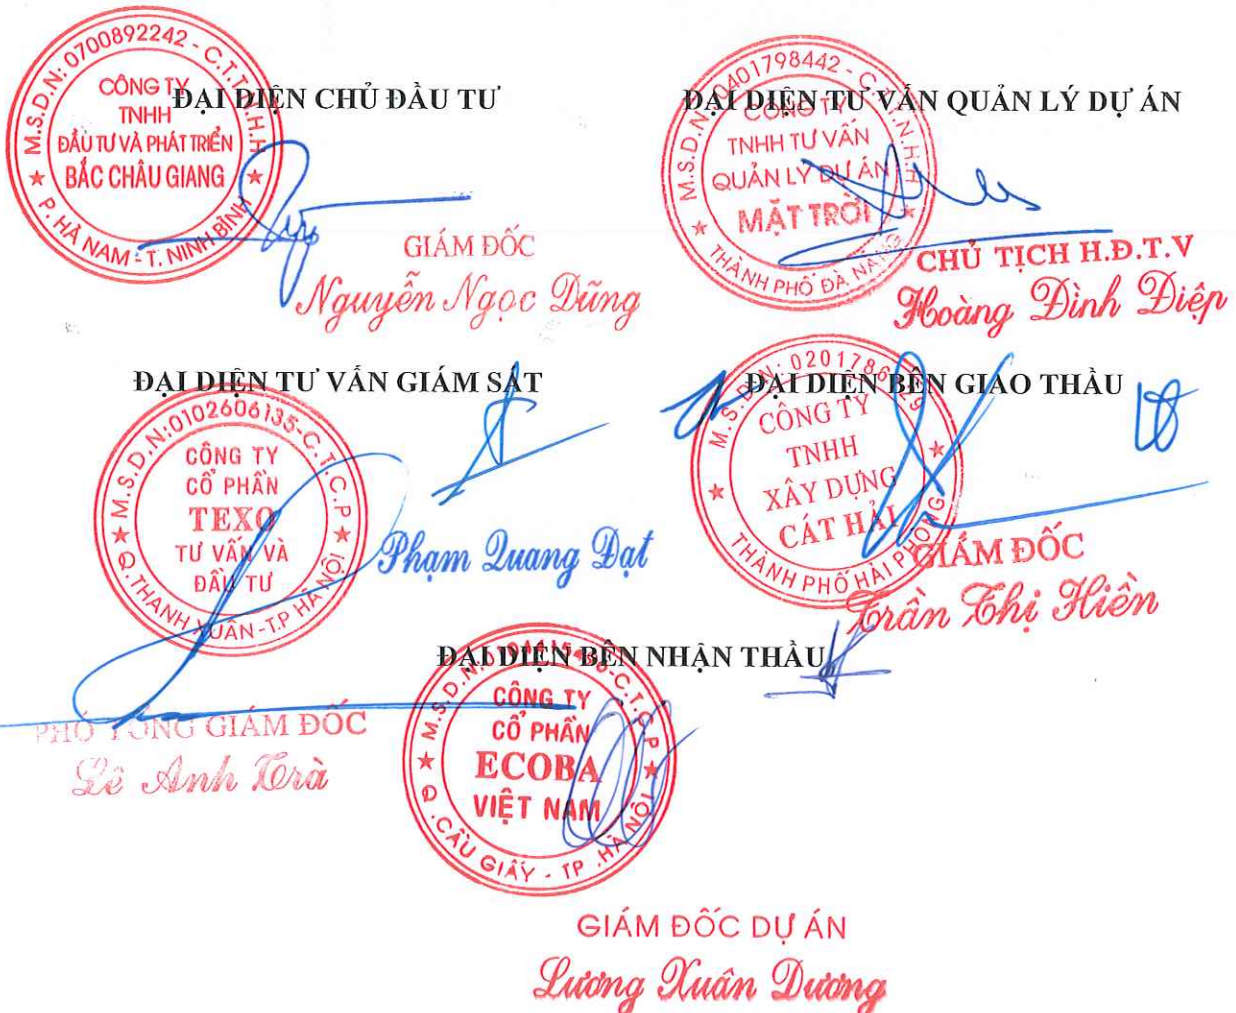 ĐẠI DIỆN CHỦ ĐẦU TƯ
M.S.D.N: 0700892242 - C.T.T.N.H.H
CÔNG TY
TNHH
ĐẦU TƯ VÀ PHÁT TRIỂN
BẮC CHÂU GIANG
P. HÀ NAM - T. NINH BÌNH
GIÁM ĐỐC
Nguyễn Ngọc Dũng
ĐẠI DIỆN TƯ VẤN QUẢN LÝ DỰ ÁN
M.S.D.N: 0401798442 - C.T.T.N.H.H
CÔNG TY
TNHH TƯ VẤN
QUẢN LÝ DỰ ÁN
MẶT TRỜI
THÀNH PHỐ ĐÀ NẴNG
CHỦ TỊCH H.Đ.T.V
Hoàng Đình Điệp
ĐẠI DIỆN TƯ VẤN GIÁM SÁT
M.S.D.N:0102606135-C.T.C.P
CÔNG TY
CỔ PHẦN
TEXO
TƯ VẤN VÀ
ĐẦU TƯ
Q.THANH XUÂN-T.P HÀ NỘI
Phạm Quang Đạt
PHÓ TỔNG GIÁM ĐỐC
Lê Anh Trà
ĐẠI DIỆN BÊN GIAO THẦU
M.S.D.N:
CÔNG TY
TNHH
XÂY DỰNG
CÁT HẢI
THÀNH PHỐ HẢI PHÒNG
GIÁM ĐỐC
Trần Thị Hiền
ĐẠI DIỆN BÊN NHẬN THẦU
M.S.D.N: C.T.C.P
CÔNG TY
CỔ PHẦN
ECOBA
VIỆT NAM
Q.CẦU GIẤY - TP.HÀ NỘI
GIÁM ĐỐC DỰ ÁN
Lương Xuân Dương